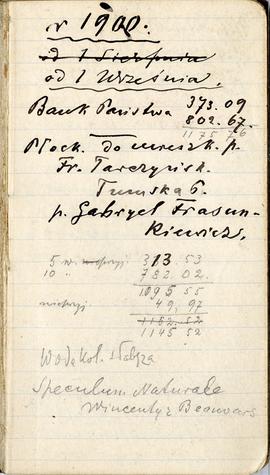 r 1900.
od 1 Sierpnia
od 1 Września.
Bank Państwa 373.09
802.67.
1175 76
Płock. do mieszk. p.
Fr. Tarczyńsk.
Tumska 6.
p. Gabryel Frasun-
kiewicz.
5 w. 313 53
10 " 782 02.
1095 55
49, 97
1152.52
1145 52
Woda kol.
Speculum Naturale
Wincenty z Beauvais